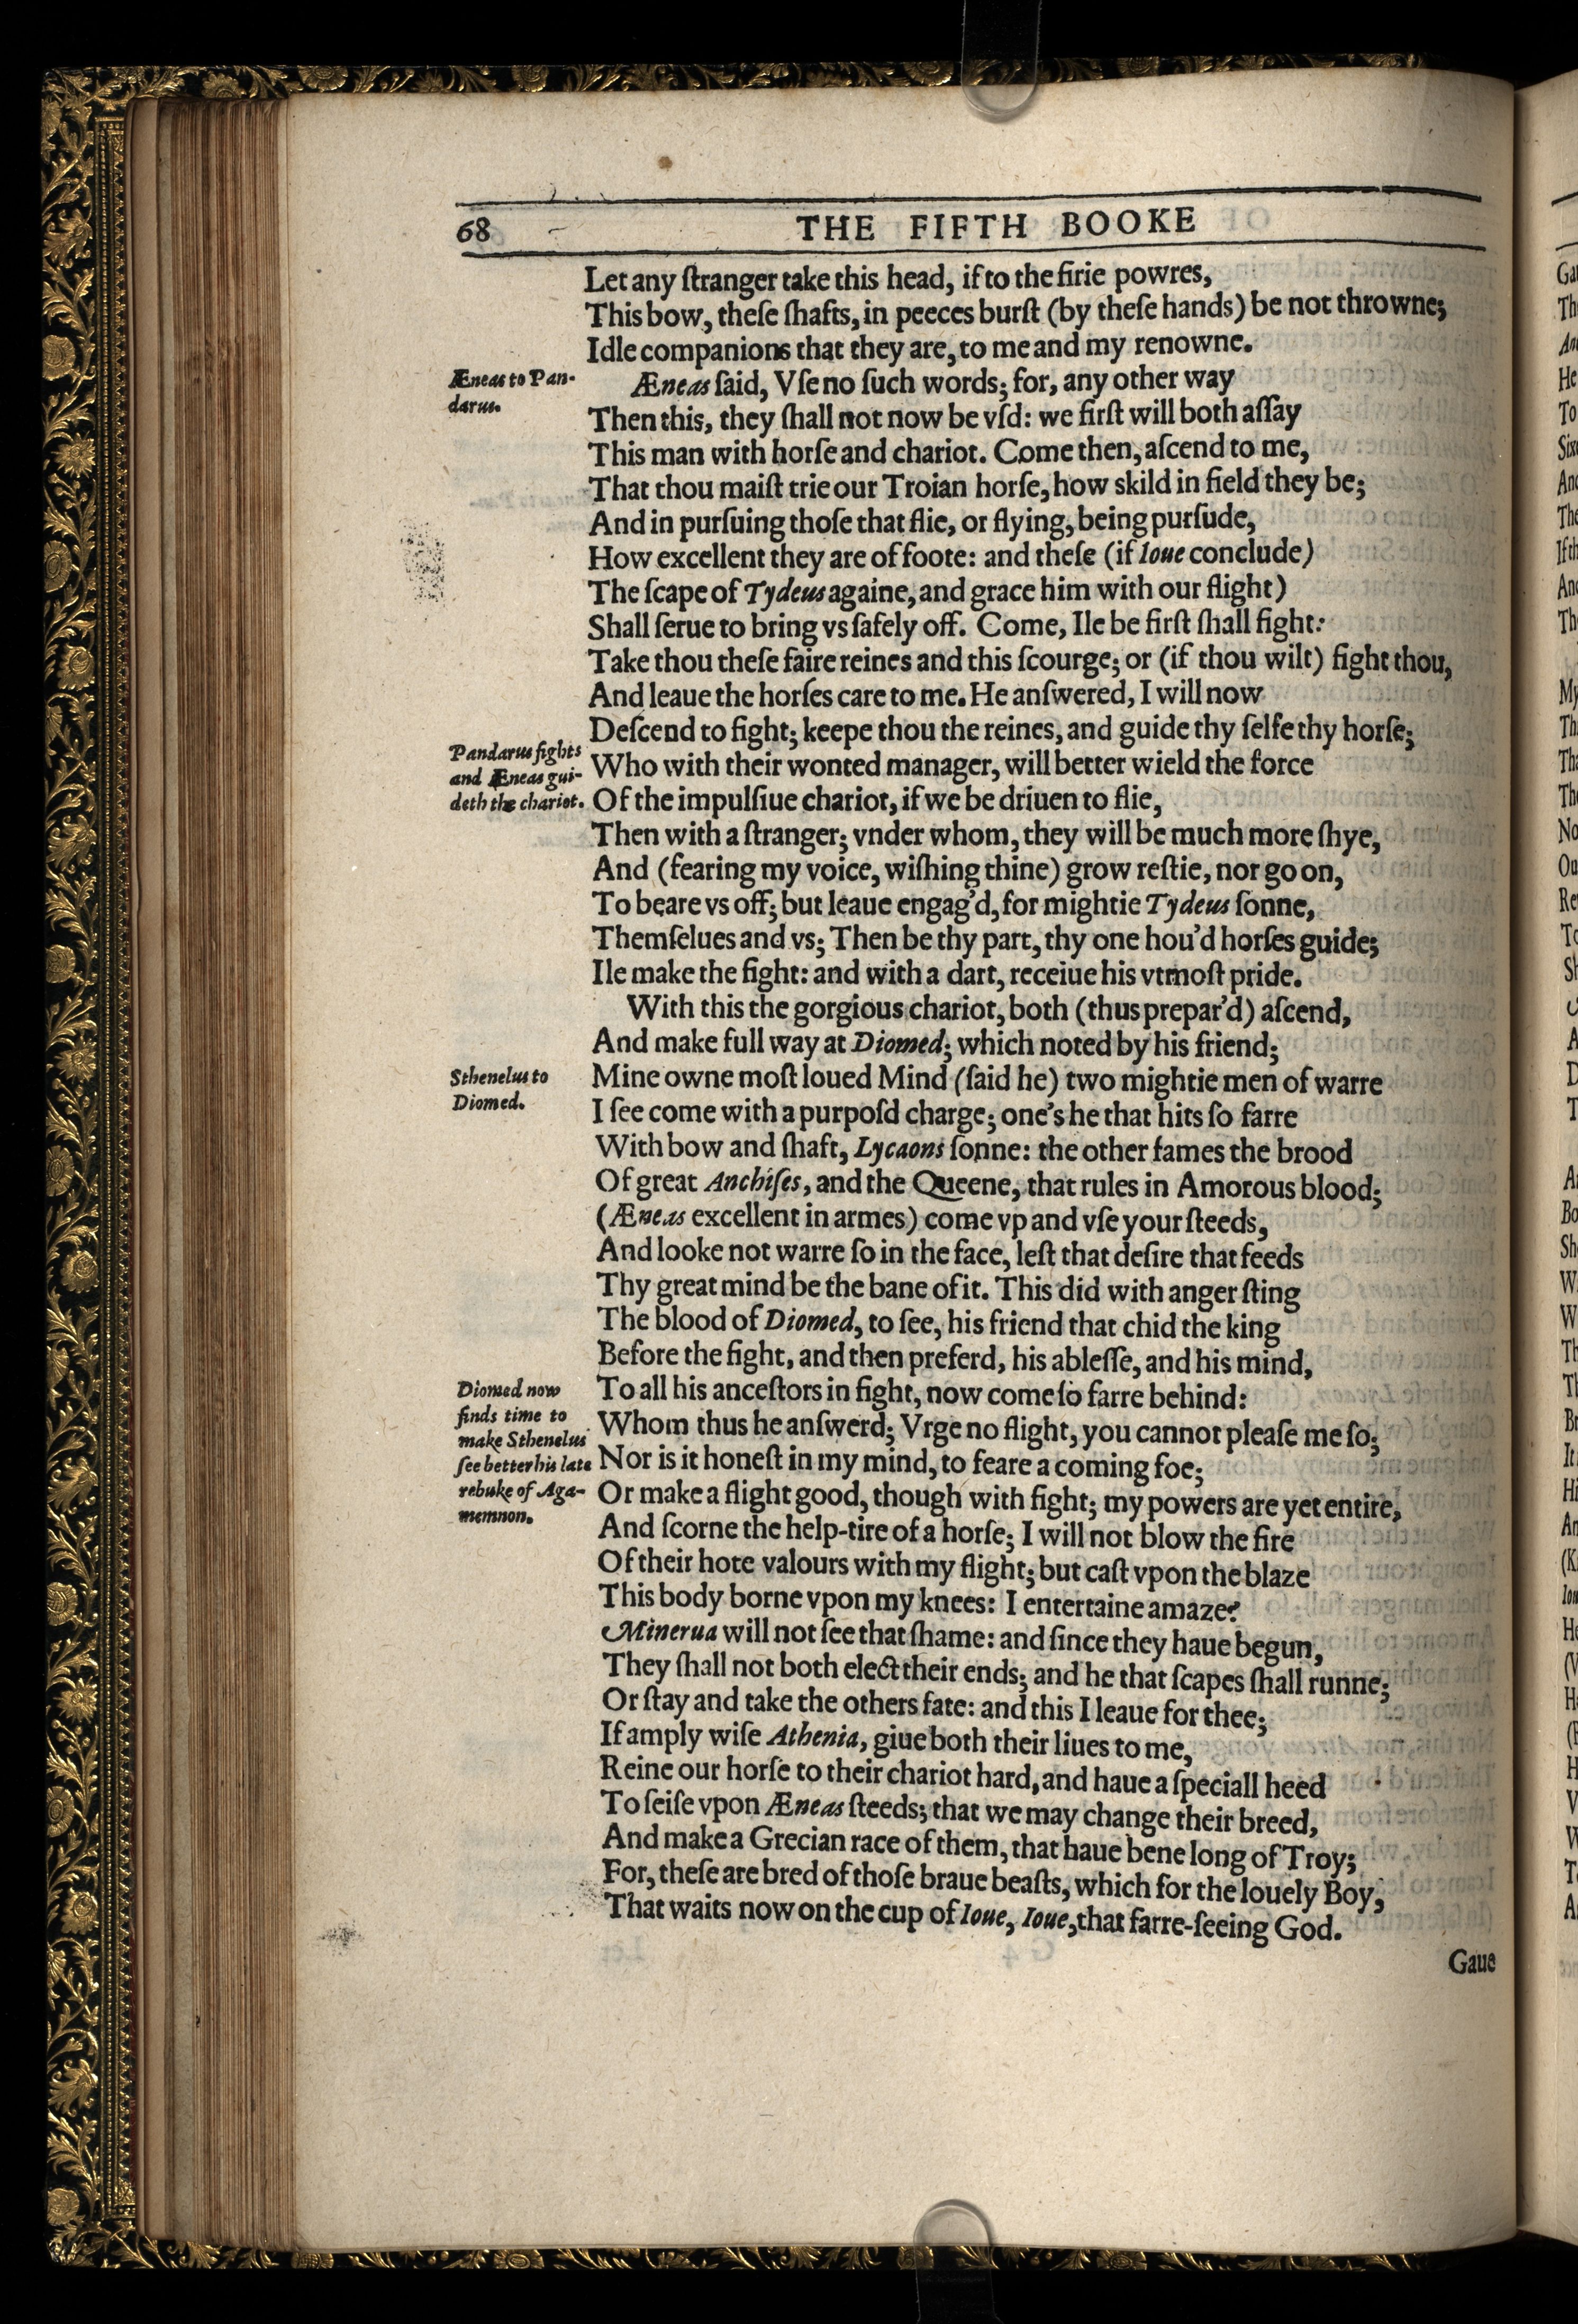 68
THE FIFTH BOOKE
Let any ſtranger take this head, if to the firie powres,
This bow, theſe ſhafts, in peeces burſt (by theſe hands) be not throwne;
Idle companions that they are, to me and my renowne.
Æneas to Pan-
darus.
Æneas ſaid, Vſe no ſuch words; for, any other way
Then this, they ſhall not now be vſd: we firſt will both aſſay
This man with horſe and chariot. Come then, aſcend to me,
That thou maiſt trie our Troian horſe, how skild in field they be;
And in purſuing thoſe that flie, or flying, being purſude,
How excellent they are of foote: and theſe (if Ioue conclude)
The ſcape of Tydeus againe, and grace him with our flight)
Shall ſerue to bring vs ſafely off. Come, Ile be firſt ſhall fight:
Take thou theſe faire reines and this ſcourge; or (if thou wilt) fight thou,
And leaue the horſes care to me. He anſwered, I will now
Deſcend to fight; keepe thou the reines, and guide thy ſelfe thy horſe;
Pandarus fights
and Æneas gui-
deth the chariot.
Who with their wonted manager, will better wield the force
Of the impulſiue chariot, if we be driuen to flie,
Then with a ſtranger; vnder whom, they will be much more ſhye,
And (fearing my voice, wiſhing thine) grow reſtie, nor go on,
To beare vs off; but leaue engag'd, for mightie Tydeus ſonne,
Themſelues and vs; Then be thy part, thy one hou'd horſes guide;
Ile make the fight: and with a dart, receiue his vtmoſt pride.
With this the gorgious chariot, both (thus prepar'd) aſcend,
And make full way at Diomed; which noted by his friend;
Sthenelus to
Diomed.
Mine owne moſt loued Mind (ſaid he) two mightie men of warre
I ſee come with a purpoſd charge; one's he that hits ſo farre
With bow and ſhaft, Lycaons ſonne: the other fames the brood
Of great Anchiſes, and the Queene, that rules in Amorous blood;
(Æneas excellent in armes) come vp and vſe your ſteeds,
And looke not warre ſo in the face, leſt that deſire that feeds
Thy great mind be the bane of it. This did with anger ſting
The blood of Diomed, to ſee, his friend that chid the king
Before the fight, and then preferd, his ableſſe, and his mind,
Diomed now
finds time to
make Sthenelus
ſee better his late
rebuke of Aga-
memnon.
To all his anceſtors in fight, now come ſo farre behind:
Whom thus he anſwerd; Vrge no flight, you cannot pleaſe me ſo;
Nor is it honeſt in my mind, to feare a coming foe;
Or make a flight good, though with fight; my powers are yet entire,
And ſcorne the help-tire of a horſe; I will not blow the fire
Of their hote valours with my flight; but caſt vpon the blaze
This body borne vpon my knees: I entertaine amaze?
Minerua will not ſee that ſhame: and ſince they haue begun,
They ſhall not both elect their ends; and he that ſcapes ſhall runne;
Or ſtay and take the others fate: and this I leaue for thee;
If amply wiſe Athenia, giue both their liues to me,
Reine our horſe to their chariot hard, and haue a ſpeciall heed
To ſeiſe vpon Æneas ſteeds; that we may change their breed,
And make a Grecian race of them, that haue bene long of Troy;
For, theſe are bred of thoſe braue beaſts, which for the louely Boy,
That waits now on the cup of Ioue, Ioue, that farre-ſeeing God.
Gaue